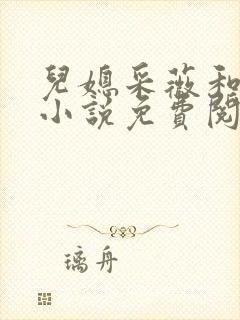 兒媳采薇和
小說免費閱
璃舟